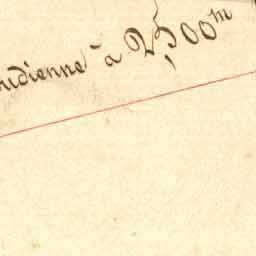 udienne à 2500 m